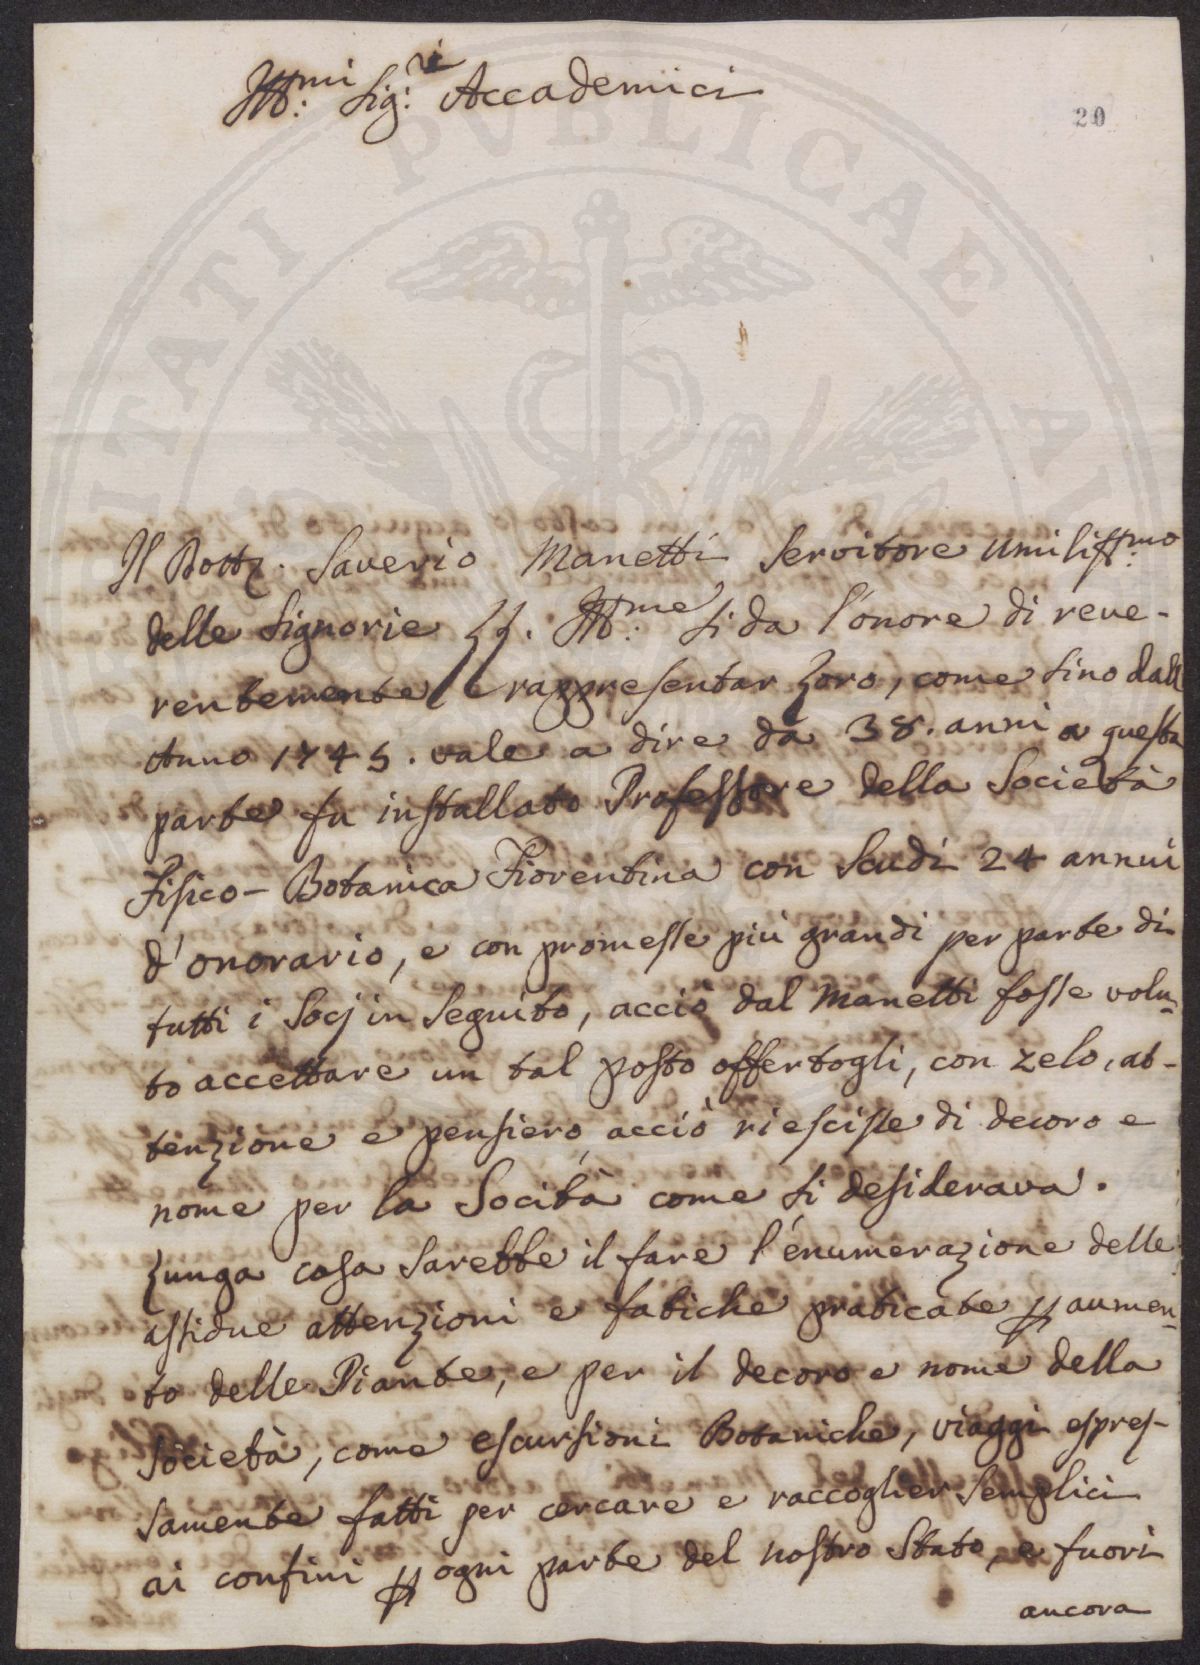 Ill.mi Sig.ri Accademici
20
Il Dott.r Saverio Manetti Servitore Umiliss.mo
delle Signorie LL. Ill.me si da l'onore di reve-
rentemente rappresentar Loro, come sino dall'
Anno 1745. vale a dire da 38. anni a questa
parte fu installato Professore della Società
Fisico-Botanica Fiorentina con Scudi 24 annui
d'onorario, e con promesse più grandi per parte di
tutti i Socj in Seguito, acciò dal Manetti fosse volu-
to accettare un tal posto offertogli, con zelo, at-
tenzione e pensiero, acciò riescisse di decoro e
nome per la Socità come si desiderava.
Lunga cosa sarebbe il fare l'enumerazione delle
assidue attenzioni e fatiche praticate p aumen-
to delle Piante, e per il decoro e nome della
Società, come escursioni Botaniche, viaggi espres-
samente fatti per cercare e raccoglier Semplici
ai confini p ogni parte del nostro Stato, e fuori
ancora
PVBLICAE